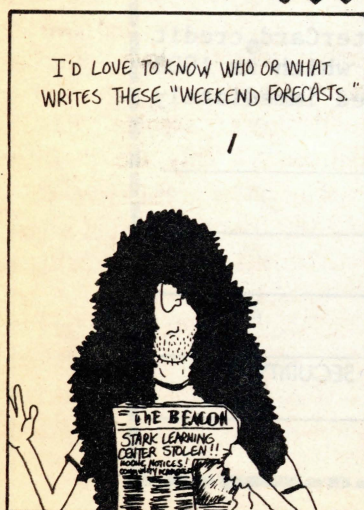 I'D LOVE TO KNOW WHO OR WHAT
WRITES THESE "WEEKEND FORECASTS."
THE BEACON
STARK LEARNING
CENTER STOLEN!!
NOTICES!